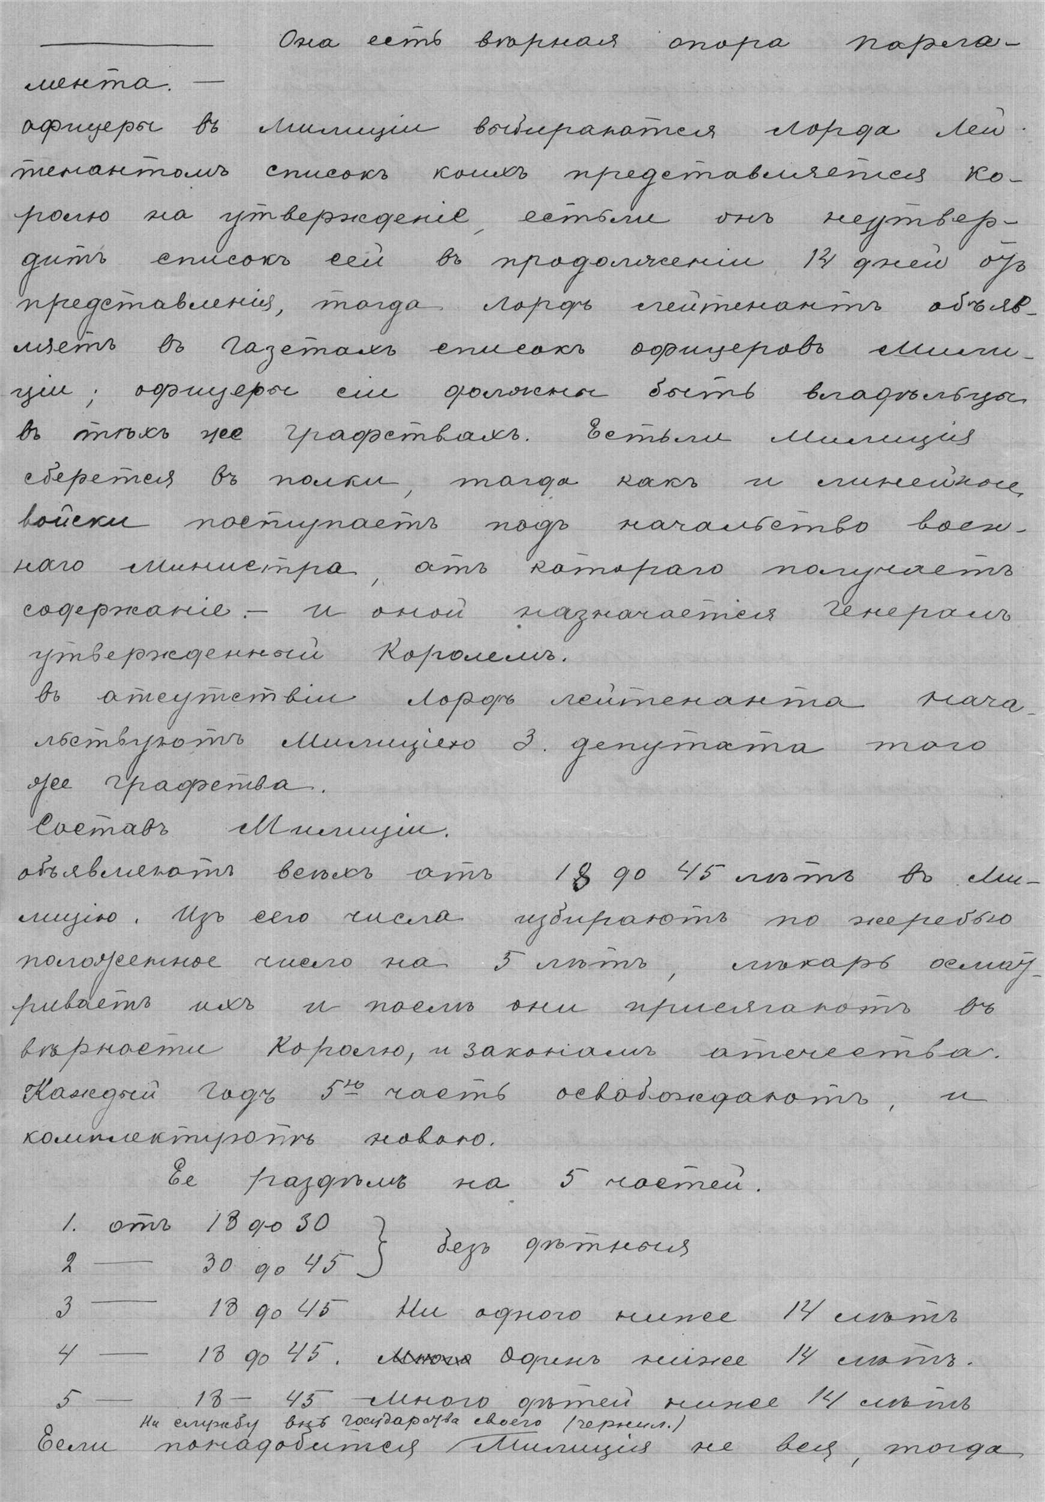 ——— Она есть вѣрная опора парла-
мента. —
офицеры въ Милиціи выбираются Лорда Лей-
тенантомъ списокъ коихъ представляется Ко-
ролю на утвержденіе, естьли онъ неутвер-
дитъ списокъ сей въ продолженіи 14 дней отъ
представленія, тогда Лордъ лейтенантъ объяв-
ляетъ въ газетахъ списокъ офицеровъ Мили-
ціи; офицеры сіи должны быть владѣльцы
въ тѣхъ же графствахъ. Естьли Милиція
сберется въ полки, тогда какъ и линейные
войски поступаетъ подъ начальство воен-
наго министра, отъ котораго получаетъ
содержаніе. — и оной назначается Генералъ
утвержденный Королемъ.
въ отсутствіи Лордъ лейтенанта нача-
льствуютъ Милиціею 3. депутата того
же графства.
Составъ Милиціи.
объявляютъ всѣхъ отъ 18 до 45 лѣтъ въ Ми-
лицію. Изъ сего числа избираютъ по жеребью
положенное число на 5 лѣтъ, лѣкарь осмат-
риваетъ ихъ и послѣ они присягаютъ въ
вѣрности Королю, и законамъ отечества.
Каждый годъ 5ю часть освобождаютъ, и
комплектуютъ новою.
Ее раздѣлъ на 5 частей.
1. отъ 18 до 30 } безъ дѣтныя
2 — 30 до 45
3 — 18 до 45 Ни одного ниже 14 лѣтъ
4 — 18 до 45. Много Одинъ ниже 14 лѣтъ.
5 — 18 — 45 Много дѣтей ниже 14 лѣтъ
На службу внѣ государства своего (чернил.)
Если понадобится Милиція не вся, тогда